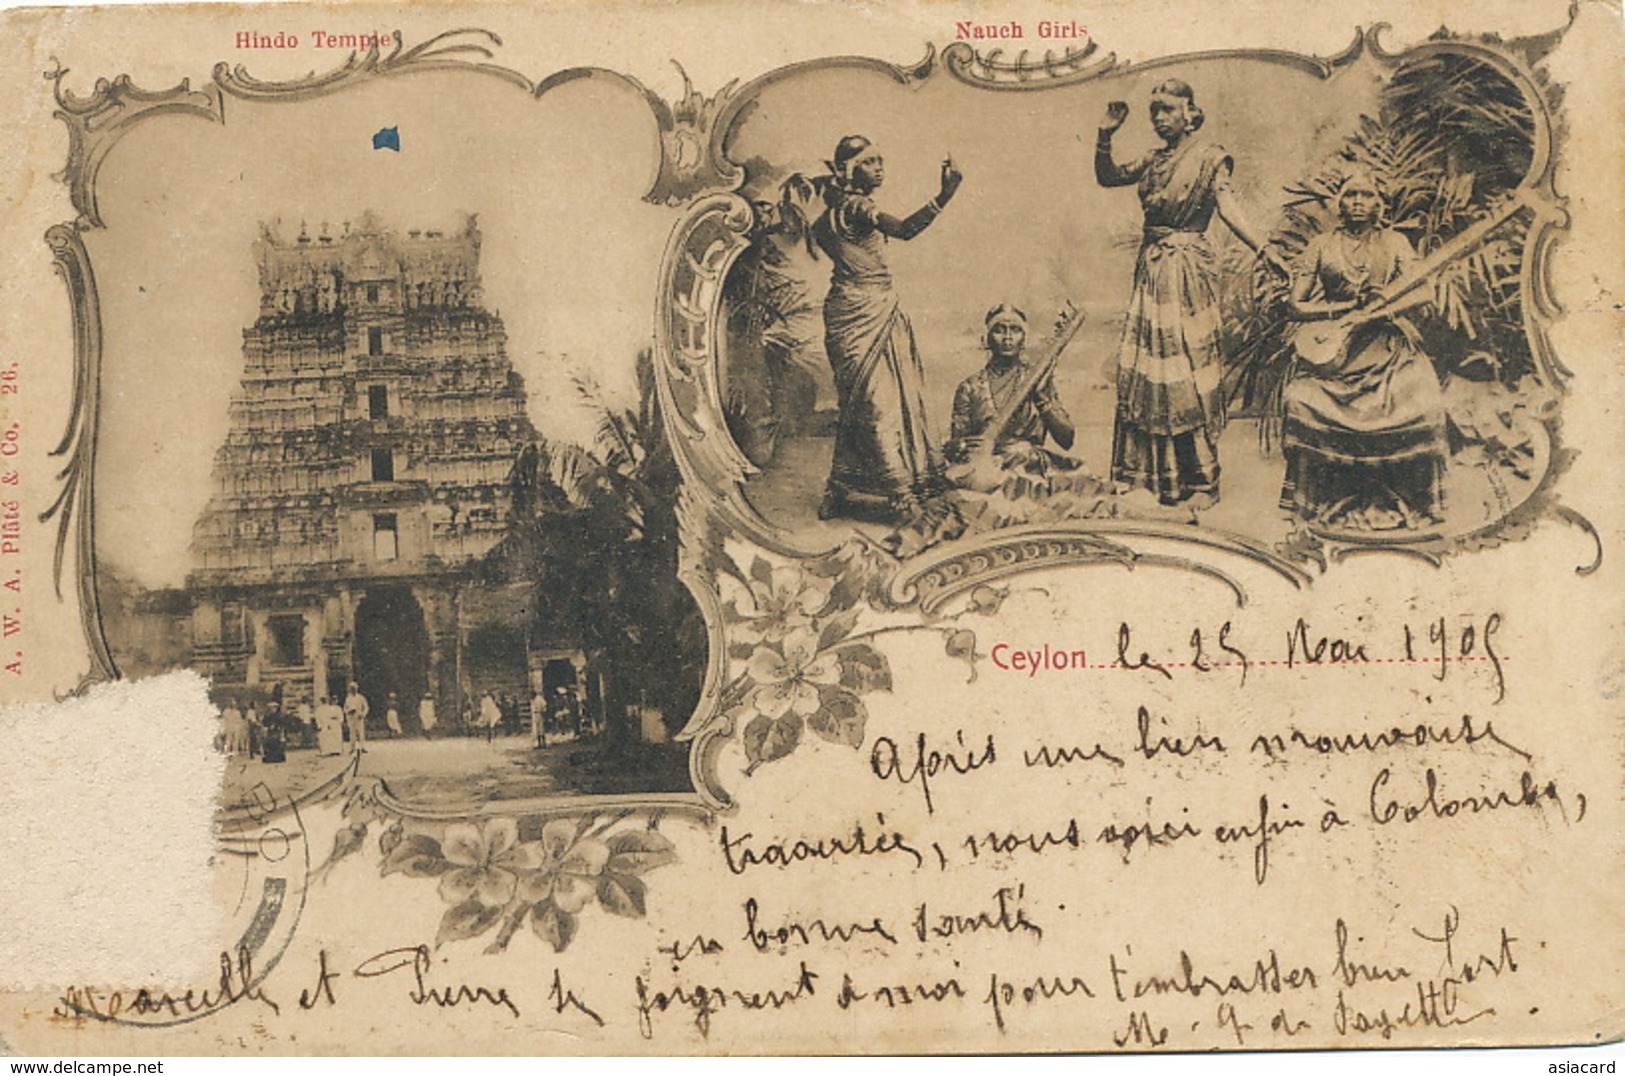 Hindo Temple
Nauch Girls
A. W. A. Plâté & Co. 26.
Ceylon le 25 Mai 1905
Après une bien mauvaise
traversée, nous voici enfin à Colombo,
en bonne santé.
Marcelle et Pierre se joignent à moi pour t'embrasser bien fort.
M.
delcampe.net
asiacard